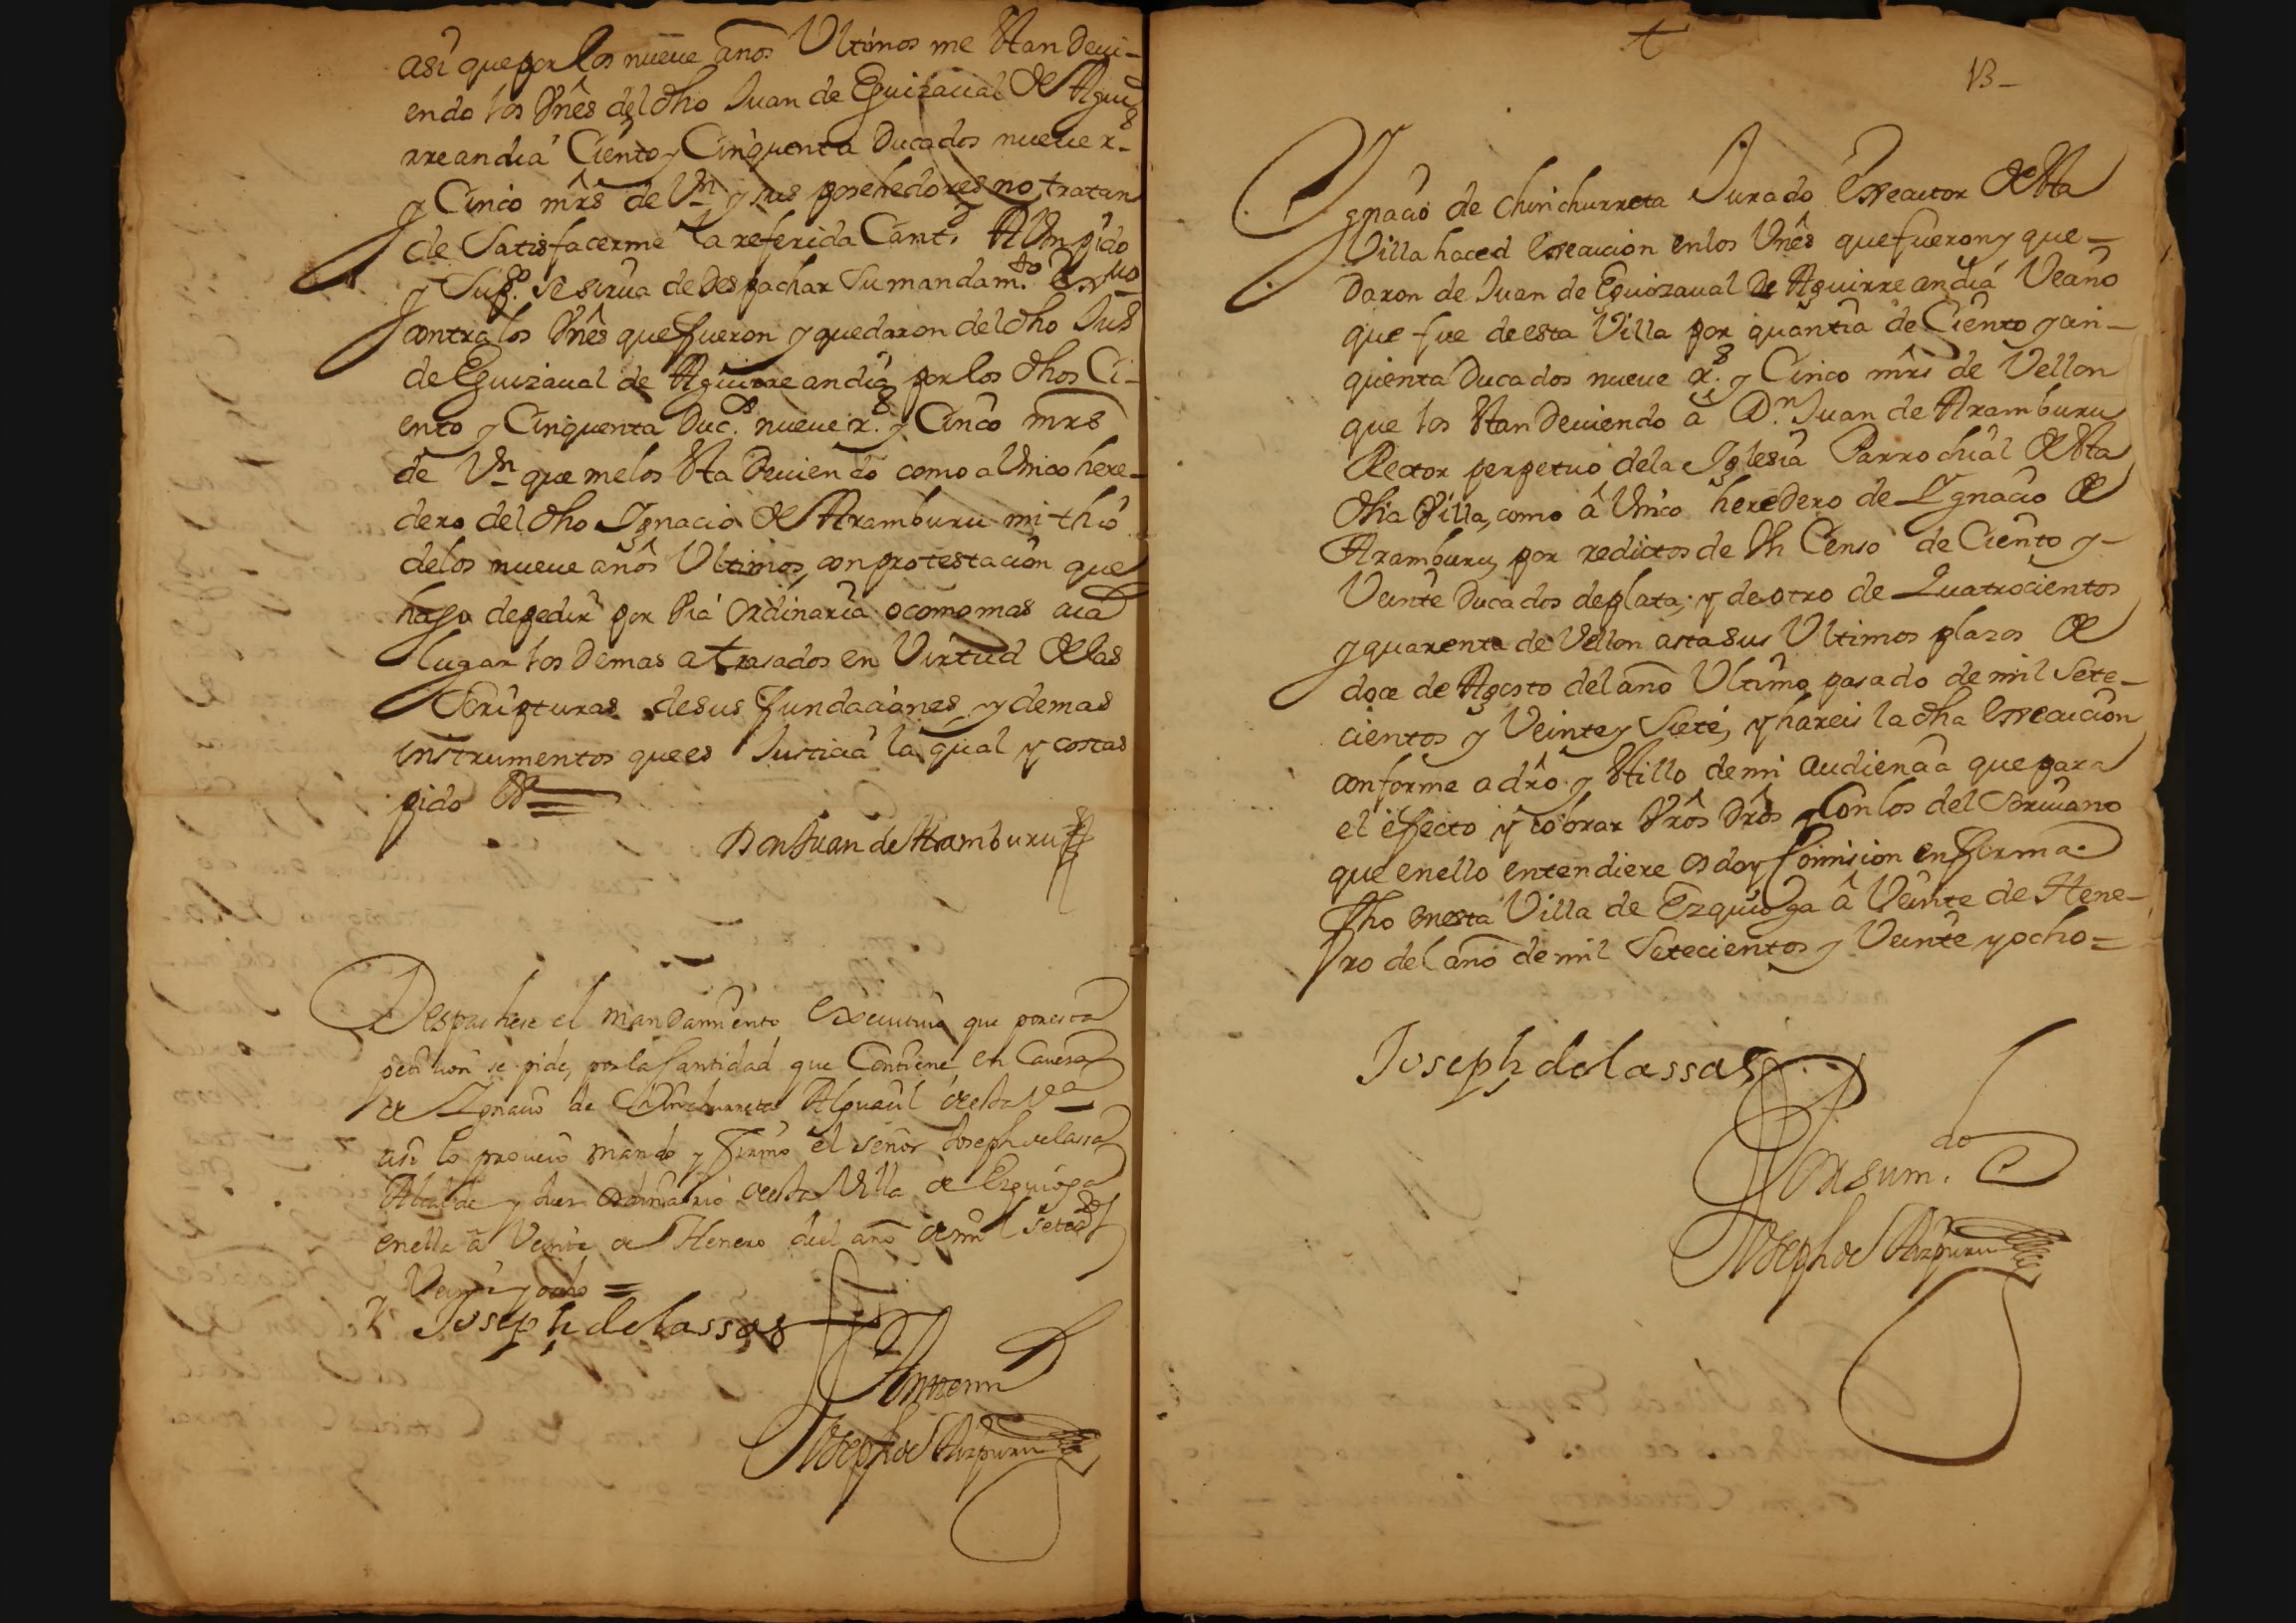 asi que por los nueue años Ultimos me Estan Deui-
endo los Vnês del dho Juan de Eguizaual de Agui
rreandia Ciento y Cinquenta Ducados nueue r.s
y Cinco mrs de Vn y sus posehedores no tratan
de Satisfacerme la referida Cant.d A Vm pido
y Sup.co Se sirua de Despachar Su mandam.to Exvo
contra los Vnês que fueron y quedaron del dho Jua
de Eguizaual de Aguirreandia por los dhos Ci-
ento y Cinquenta Duc.s nueue r.s y Cinco mrs
de Vn que me los Esta Deuiendo como a Unico here-
dero del dho Ignacio de Aramburu mi thio
de los nueue años Ultimos, con protestacion que
hago de pedir por Via Ordinaria o como mas aia
lugar los Demas atrasados en Virtud de las
Scripturas de sus fundaciones, y demas
instrumentos que es Justicia la qual y costas
pido &
Don Juan de Aramburu
Despachese el mandamiento executiuo que por esta
peticion se pide, por la Cantidad que Contiene en Caueza
de Ignacio de Chinchurreta Alguacil de esta Va
asi lo proueio mando y firmo el señor Joseph de lassa
Alcalde y Juez ordinario de esta Villa de Ezquioga
en ella a Veinte de Henero del año de mil setecs
Veinte y ocho =
Joseph de lassas
Ante mi
Joseph de Aizpuru
13-
Ygnacio de Chinchurreta Jurado Exsecutor de Esta
Villa haced Exsecucion en los Vnês que fueron y que-
Daron de Juan de Eguizaual de Aguirreandia Vezino
que fue de esta Villa por quantia de Ciento y cin-
quenta Ducados nueue r.s y Cinco mrs de Vellon
que los Estan Deuiendo â D.n Juan de Aramburu
Rector perpetuo de la Iglesia Parrochial de Esta
dha Villa, como â Unico heredero de Ygnacio de
Aramburu, por redictos de Vn Censo de Ciento y-
Veinte Ducados de plata; y de otro de Quatrocientos
y quarenta de Vellon asta sus Ultimos plazos de
doce de Agosto del año Ultimo pasado de mil Sete-
cientos y Veinte y Siete, y hareis la dha Exsecucion
conforme a drô y Estillo de mi audiencia que para
el efecto y cobrar Vrôs Drôs y Con los del Scriuano
que en ello entendiere os doy Comision en forma.
Fho en esta Villa de Ezquioga â Veinte de Hene-
ro del año de mil Setecientos y Veinte y ocho =
Joseph de lassas
Por su m.do
Joseph de Aizpuru